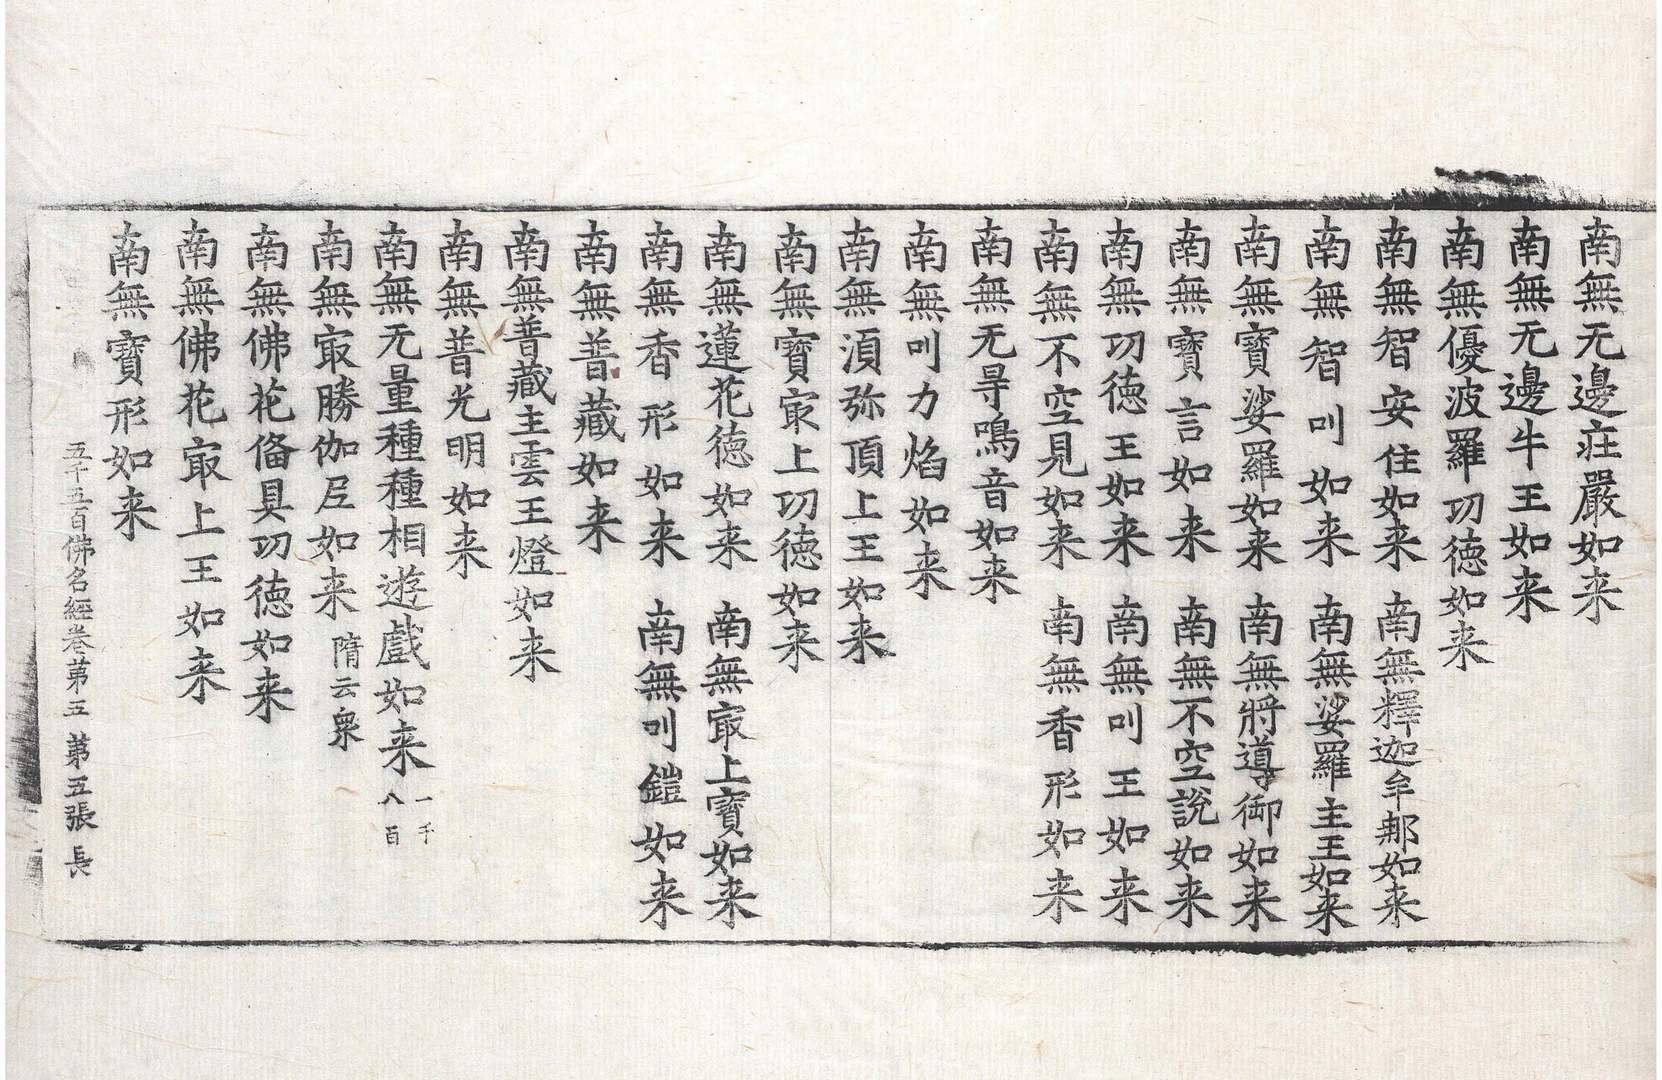 南無无邊莊嚴如来
南無无邊牛王如来
南無優波羅功徳如来
南無智安住如来 南無釋迦牟𨚗如来
南無智叫如来 南無娑羅主王如来
南無寶娑羅如来 南無將導御如来
南無寶言如来 南無不空說如来
南無功徳王如来 南無叫王如来
南無不空見如来 南無香形如来
南無无㝵鳴音如来
南無叫力焰如来
南無湏弥頂上王如来
南無寶㝡上功徳如来
南無蓮花徳如来 南無㝡上寶如来
南無香形如来 南無叫鎧如来
南無普藏如来
南無普藏主雲王燈如来
南無普光明如来
南無无量種種相遊戲如来 一千八百
南無㝡勝伽㞐如来 隋云衆
南無佛花俻具功徳如来
南無佛花㝡上王如来
南無寶形如来
五千五百佛名經卷苐五 苐五張 長